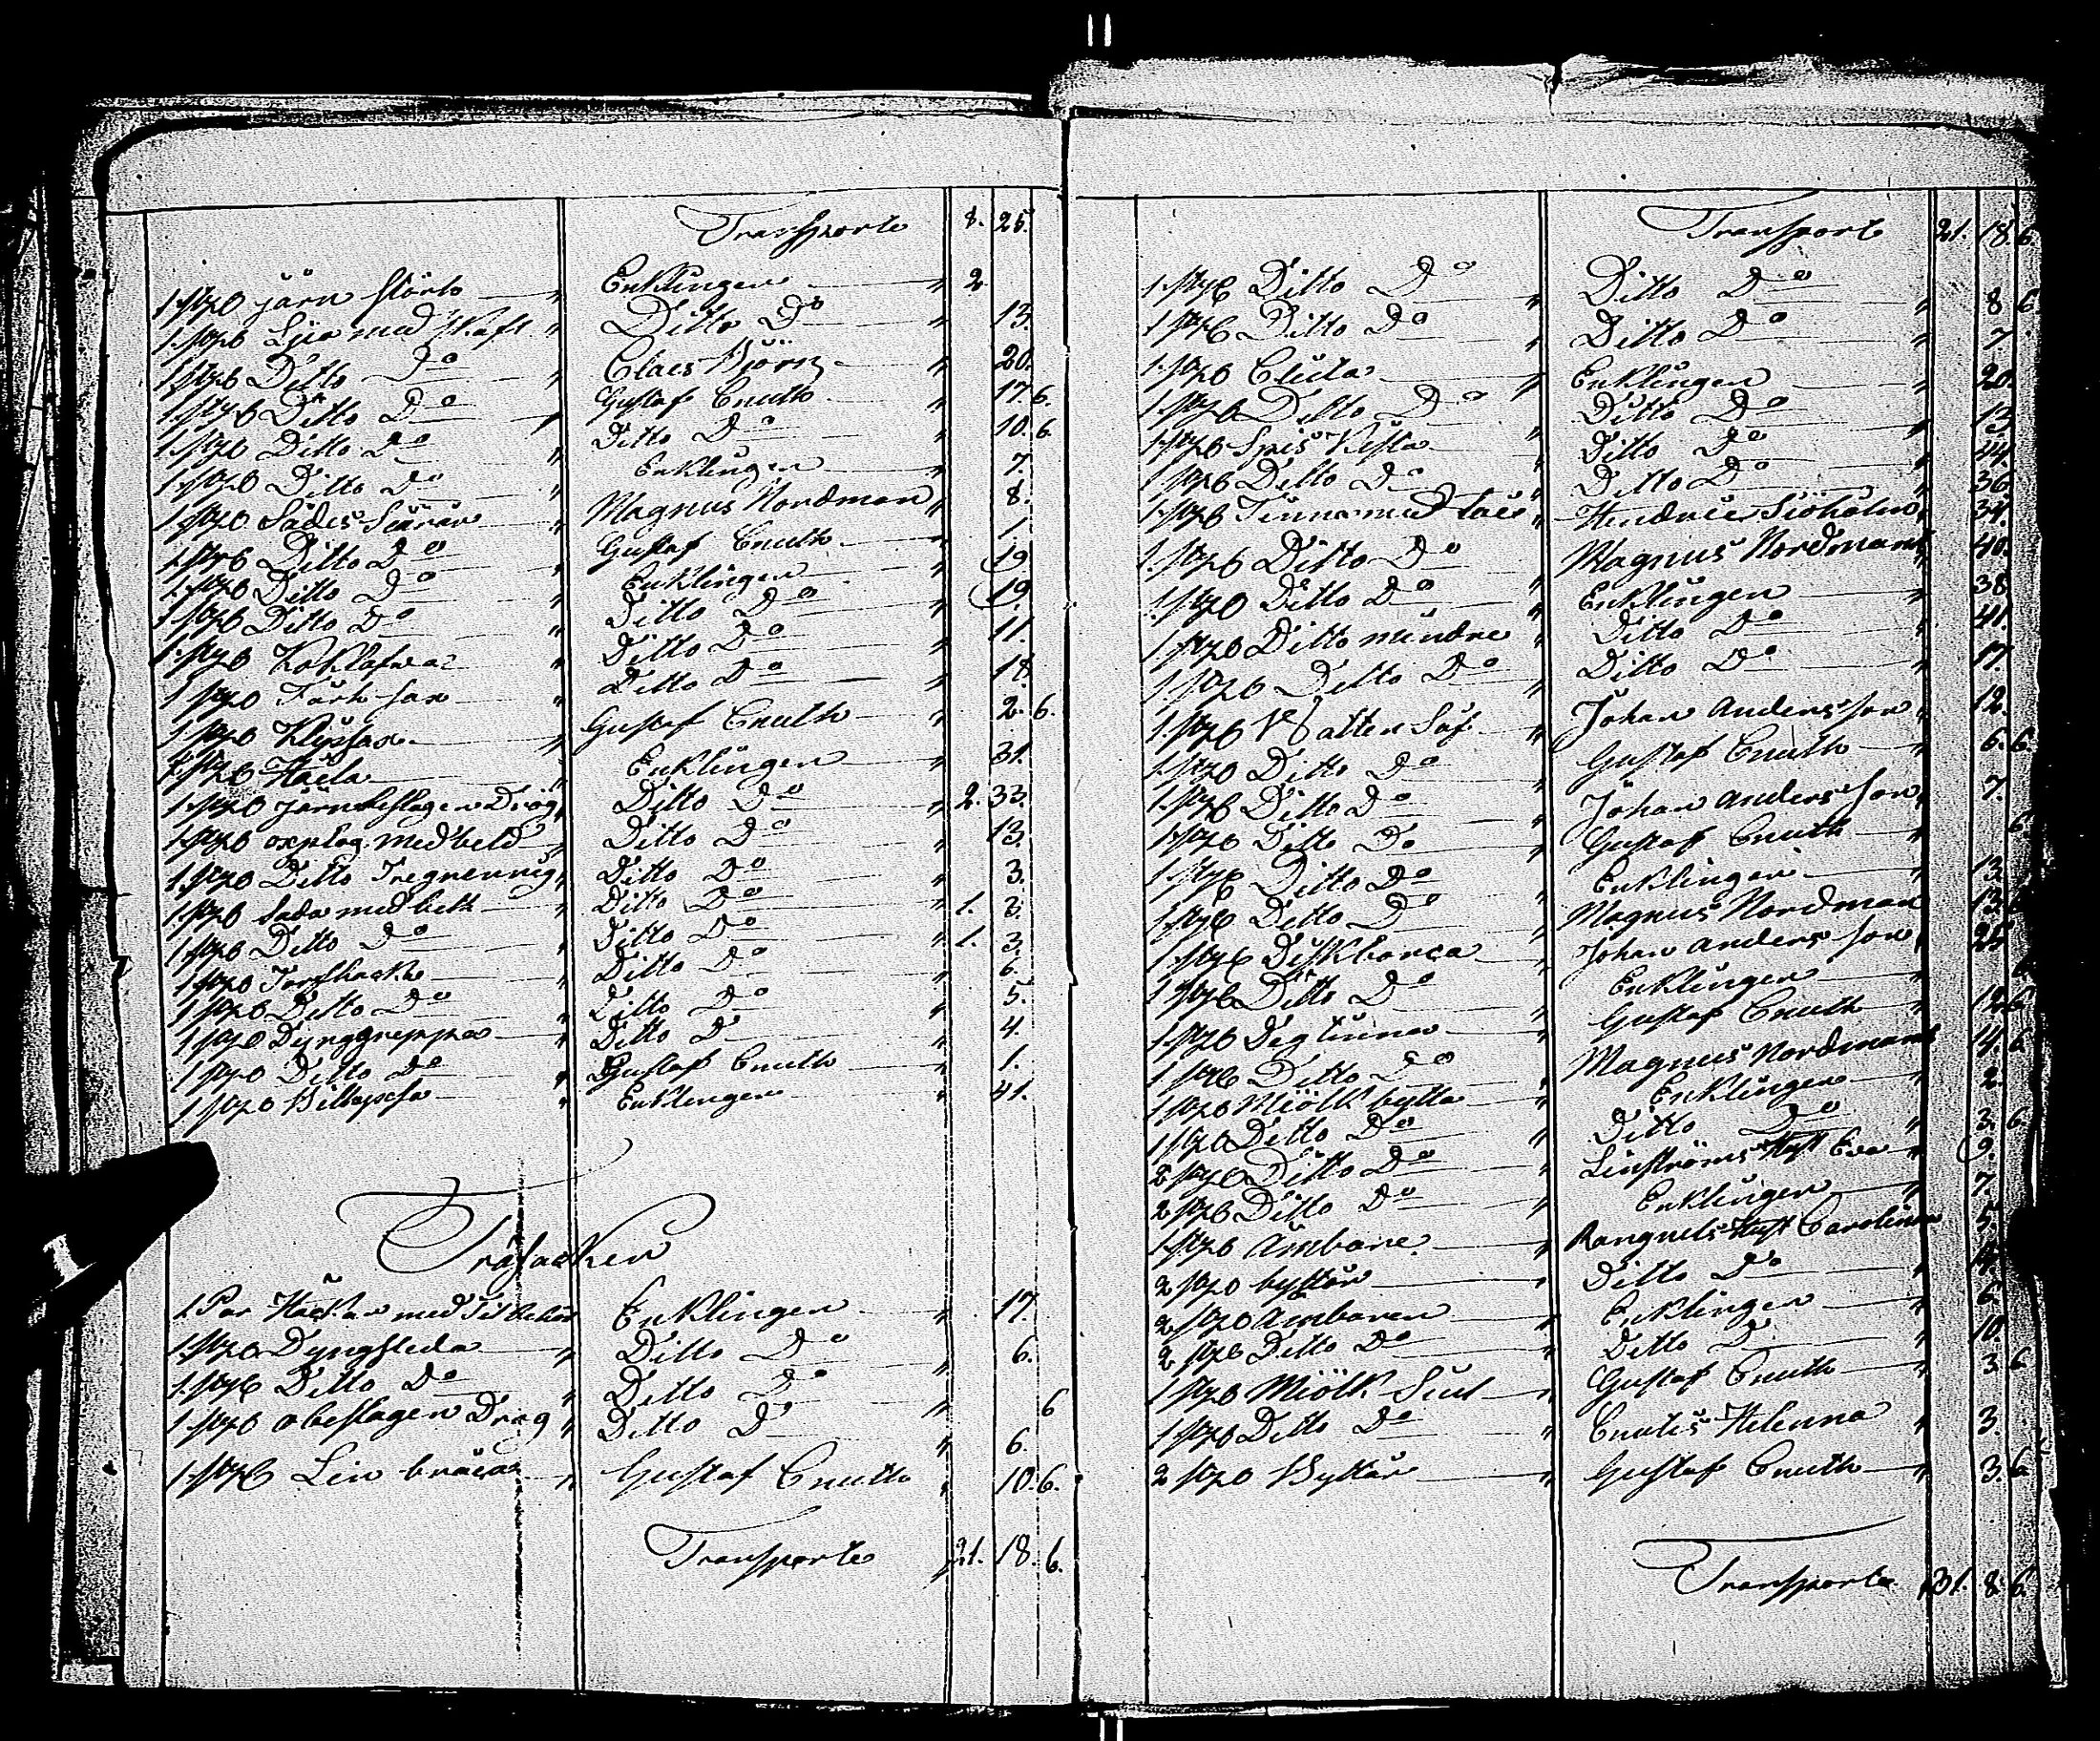 Transporte 8. 25.
1 styk järn störb Enklingen 2.
1 styk Lya med skaft Ditto Do 13.
1 styk Ditto Do Claes Björn 20.
1 styk Ditto Do Gustaf Cnuth 17. 6.
1 styk Ditto Do Ditto Do 10. 6.
1 styk Ditto Do Enklingen 7.
1 styk Sädes Magnus Nordman 8.
1 styk Ditto Do Gustaf Cnuth 1.
1 styk Ditto Do Enklingen 19
1 styk Ditto Do Ditto Do 19.
1 styk Ditto Do 11.
1 styk Ditto Do 18.
1 styk Gustaf Cnuth 2. 6.
1 styk Häcla Enklingen 31.
1 styk järnbeslagen Drög Ditto Do 2. 33.
1 styk oxplog med beld Ditto Do 13.
1 styk Ditto Ditto Do 3.
1 styk Sada med belt Ditto Do 1. 3.
1 styk Ditto Do Ditto Do 1. 3.
1 styk Torfhacka Ditto Do 6.
1 styk Ditto Do Ditto Do 5.
1 styk Dynggreppa Ditto Do 4.
1 styk Ditto Do Gustaf Cnuth 1.
1 styk Bilyxa Enklingen 41.
Träsacken
1 Par Häckar med Tilbehör Enklingen 17.
1 styk Dyngsleda Ditto Do 6.
1 styk Ditto Do Ditto Do 6
1 styk obeslagen Drög Ditto Do 6.
1 styk Lin bråca Gustaf Cnuth 10. 6.
Transporte 21. 18. 6.
Transporte 21. 18. 6.
1 styk Ditto Do Ditto Do 8 6.
1 styk Ditto Do Ditto Do 7
1 styk Enklingen 20.
1 styk Ditto Do Ditto Do 13
1 styk Spis Kista Ditto Do 44.
1 styk Ditto Do Ditto Do 36.
1 styk Tinna med Låck Hendric Siöholm 34.
1 styk Ditto Do Magnus Nordman 40.
1 styk Ditto Do Enklingen 38.
1 styk Ditto mindre Ditto Do 41.
1 styk Ditto Do Ditto Do 17.
1 styk Watten Så Johan Andersson 12.
1 styk Ditto Do Gustaf Cnuth 6. 6.
1 styk Ditto Do Johan Andersson 7.
1 styk Ditto Do Gustaf Cnuth 6
1 styk Ditto Do Enklingen 13
1 styk Ditto Do Magnus Nordman 13. 6
1 styk Diskbonca Johan Andersson 25
1 styk Ditto Do Enklingen 6
1 styk Degtinna Gustaf Cnuth 12. 6
1 styk Ditto Do Magnus Nordman 4. 6
1 styk Miölk bytta Enklingen 2.
1 styk Ditto Do Ditto Do 3. 6
2 styk Ditto Do Linströms Hust Eva 9.
2 styk Ditto Do Enklingen 7.
1 styk Ämbare Rangnels Hust Carolina 5.
2 styk byttor Ditto Do 4.
2 styk Ämbaren Enklingen 6.
2 styk Ditto Do Ditto Do 10
1 styk Miölk Gustaf Cnuth 3. 6
1 styk Ditto Do Cnutis Helenna 3.
2 styk Byttor Gustaf Cnuth 3. 6
Transporte 31. 8. 6.